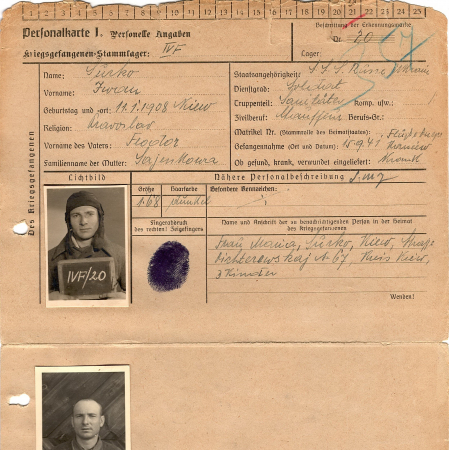 1 2 3 4 5 6 7 8 9 10 11 12 13 14 15 16 17 18 19 20 21 22 23 24 25
Personalkarte I. Personelle Angaben
Beschriftung der Erkennungsmarke
Nr. 20
Kriegsgefangenen-Stammlager: IVF
Lager:
Des Kriegsgefangenen
Name: Surko
Staatsangehörigkeit:
Vorname: Iwan
Dienstgrad: Soldat
Geburtstag und -ort: 11.1.1908 Kiew
Truppenteil: Komp. usw.:
Religion:
Zivilberuf: Berufs-Gr.:
Matrikel Nr. (Stammrolle des Heimatstaates):
Vorname des Vaters:
Gefangennahme (Ort und Datum): 15.9.41
Familienname der Mutter:
Ob gesund, krank, verwundet eingeliefert:
Lichtbild
Nähere Personalbeschreibung
Größe
Haarfarbe
Besondere Kennzeichen:
1.68
dunkel
Fingerabdruck
des rechten! Zeigefingers
Name und Anschrift der zu benachrichtigenden Person in der Heimat
des Kriegsgefangenen
Frau Maria, Surko, Kiew,
N 67, Kreis Kiew,
3 Kinder
IVF/20
Wenden!